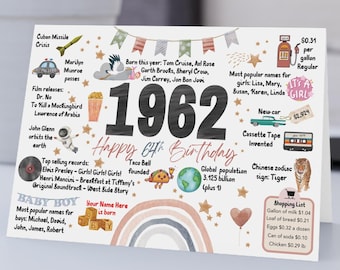 Cuban Missile
Crisis
Born this year: Tom Cruise, Axl Rose
Garth Brooks, Sheryl Crow,
Jim Carrey, Jon Bon Jovi
$0.31
per gallon
Regular
Marilyn
Monroe
passes
Most popular names for
girls: Lisa, Mary, Susan,
Karen, Linda
IT'S A
GIRL
Film releases:
Dr. No
To Kill a Mockingbird
Lawrence of Arabia
1962
Happy 64th Birthday
New car
Cassette Tape
Invented
John Glenn
orbits the
earth
Taco Bell
founded
Global population
3.125 billion
(plus 1)
Chinese zodiac
sign: Tiger
Top selling records:
Elvis Presley - Girls! Girls! Girls!
Henry Mancini - Breakfast at Tiffany's
Original Soundtrack - West Side Story
BABY BOY
Most popular names for
boys: Michael, David,
John, James, Robert
Your Name Here
is born
Shopping List
Gallon of milk $1.04
Loaf of bread $0.21
Eggs $0.32 a dozen
Can of soda $0.10
Chicken $0.29 lb